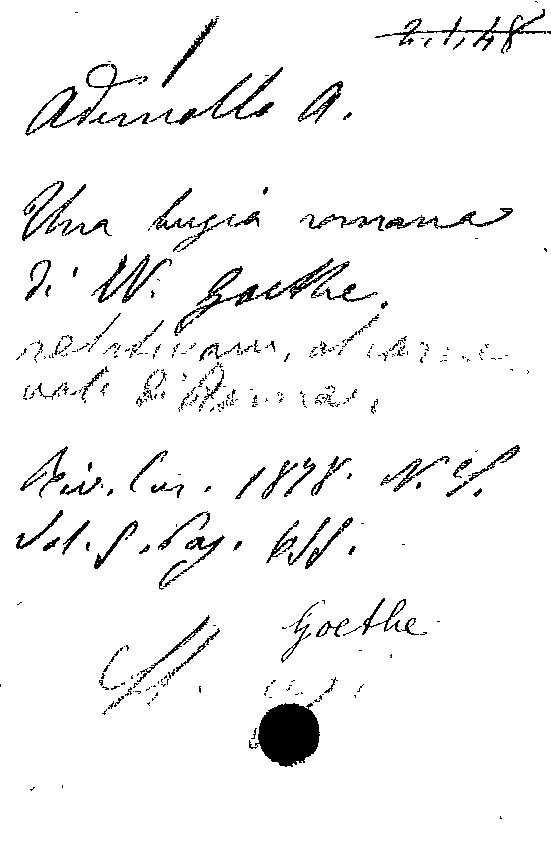 2.1.48
Ademollo A.
Una bugia romana
di W. Goethe.
relativam. al carne
vale di Roma.
Riv. Eur. 1878. N. S.
Vol. 8. Pag. 655.
Goethe